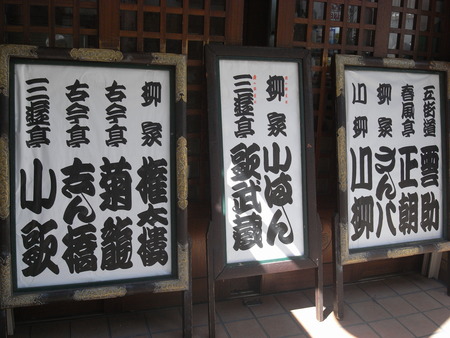 五街道 雲助
春風亭 正朝
柳家 さん八
川柳 川柳
柳家 小はん
三遊亭 歌武蔵
柳家 権太楼
古今亭 菊龍
古今亭 志ん橋
三遊亭 小歌